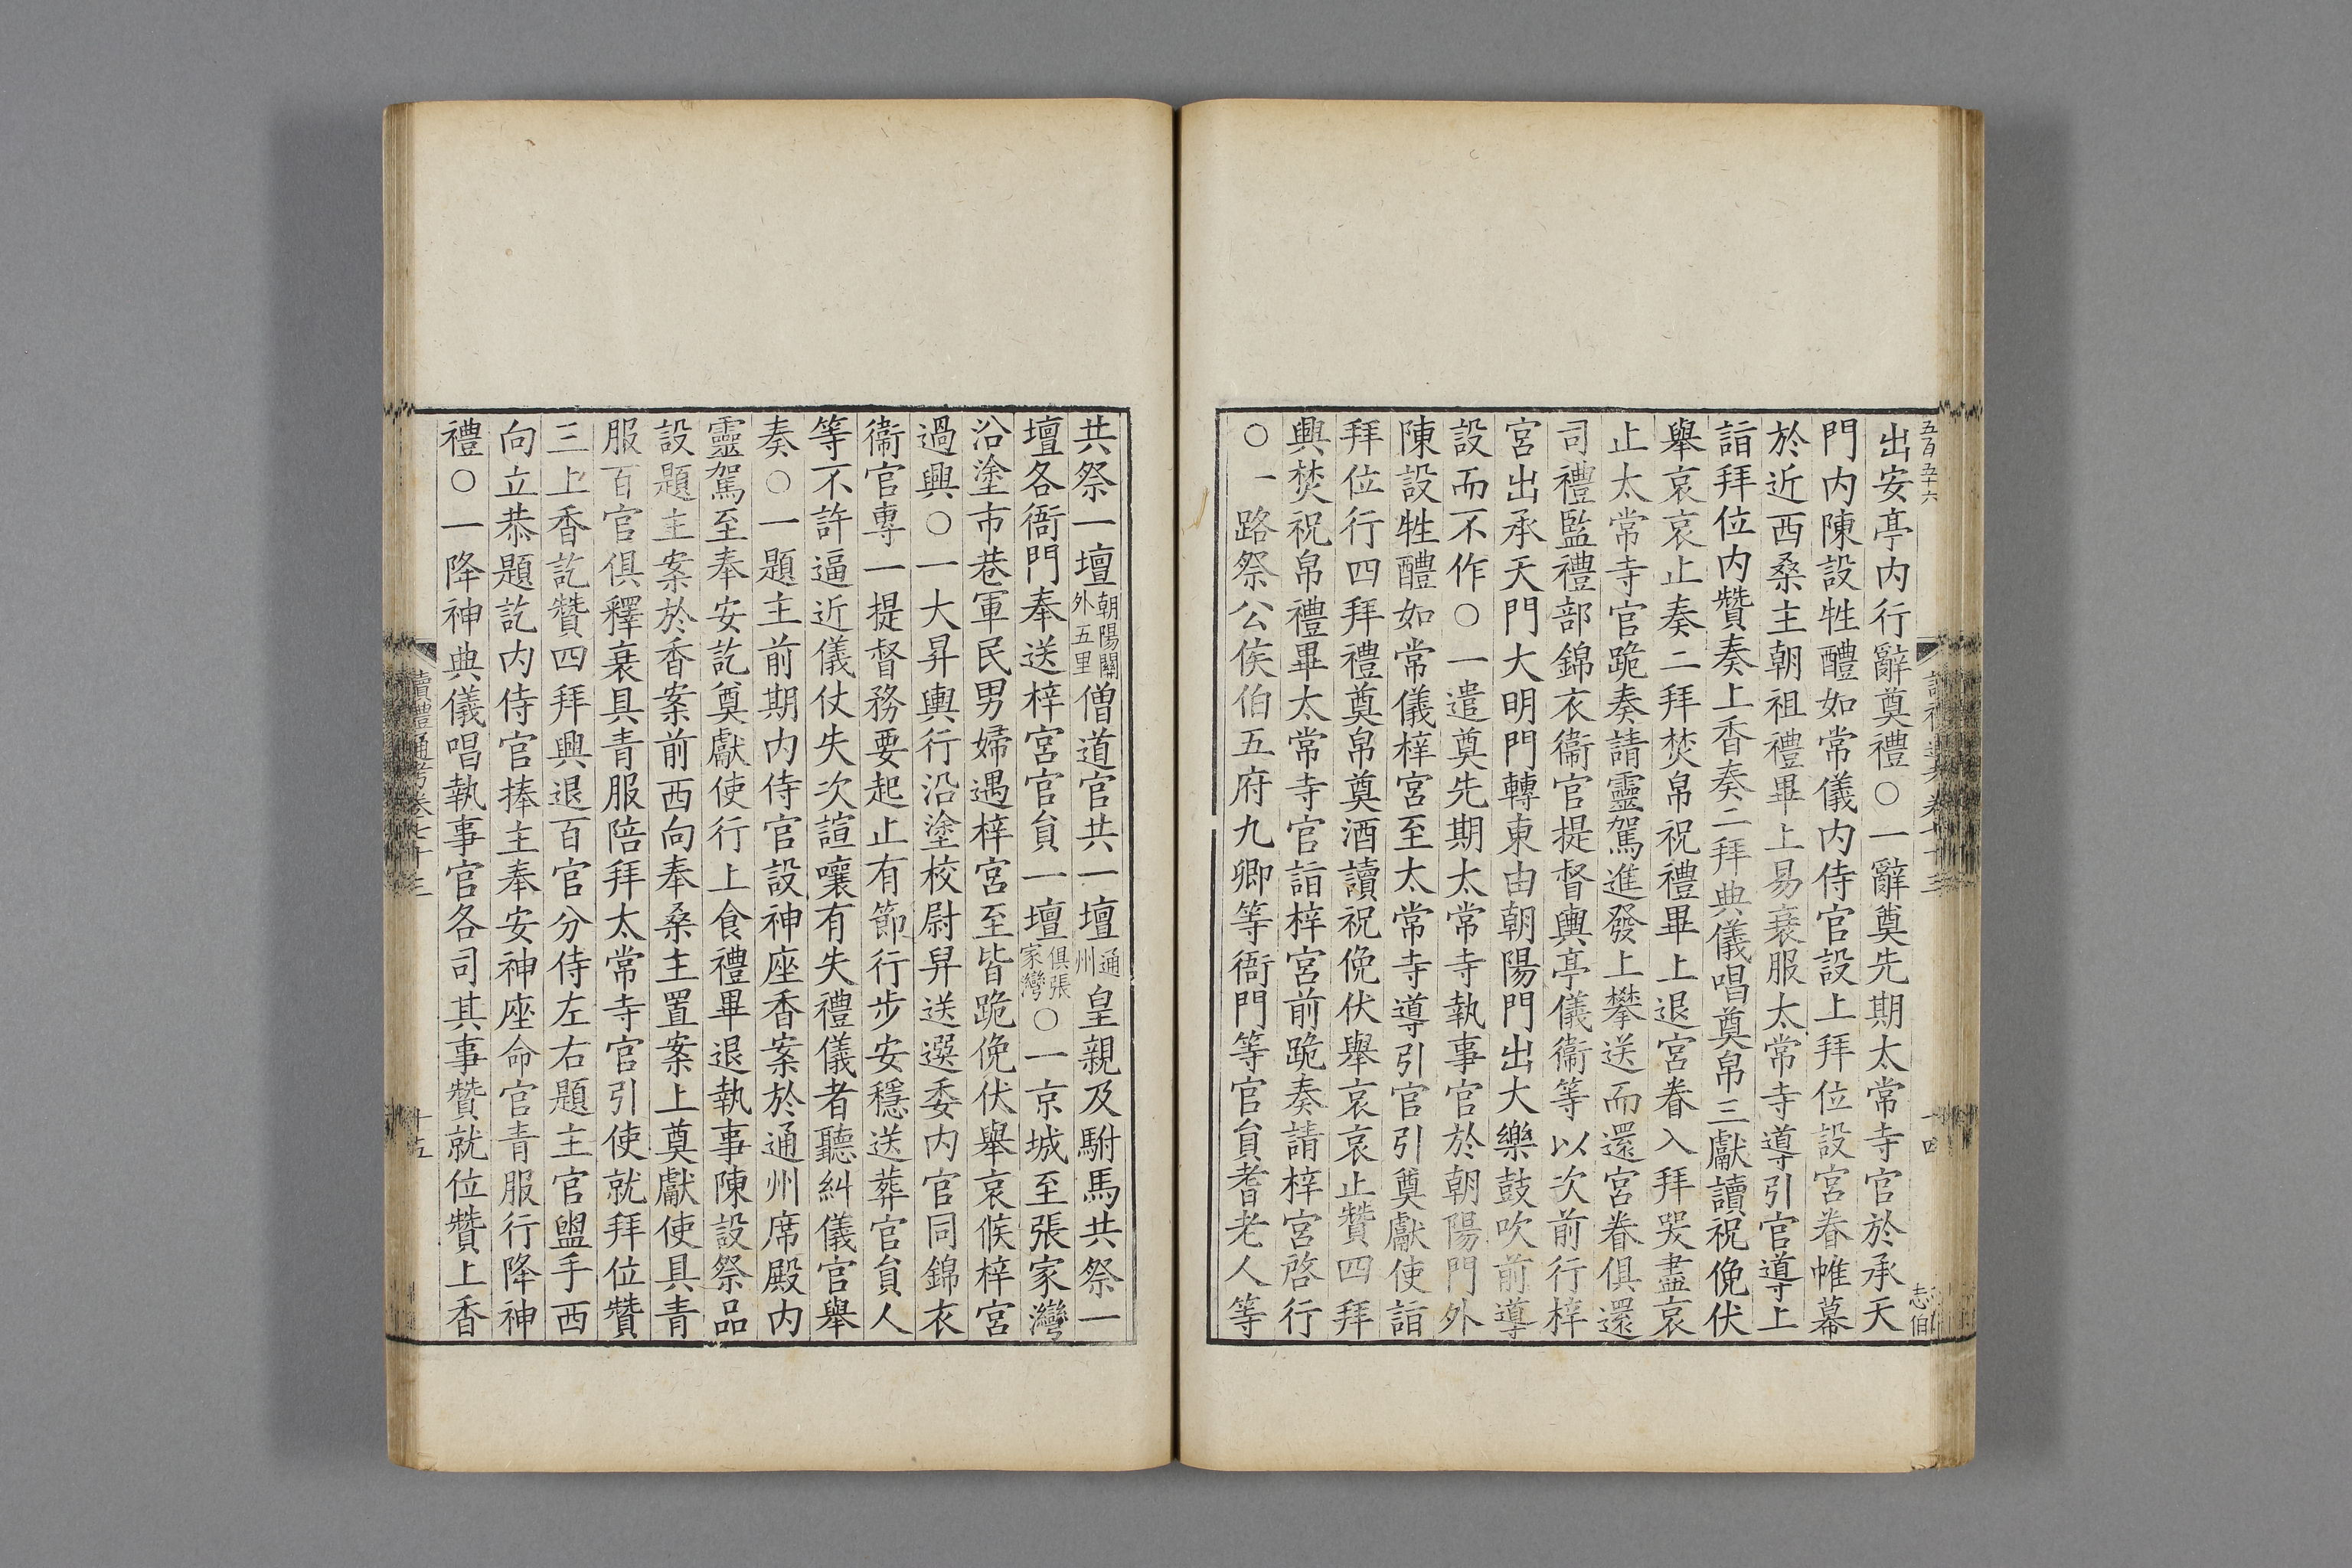 五百五十六
出安亭内行辭奠禮○一辭奠先期太常寺官於承天
門内陳設牲醴如常儀内侍官設上拜位設宮眷帷幕
於近西桑主朝祖禮畢上易衰服太常寺導引官導上
詣拜位内贊奏上香奏二拜典儀唱奠帛三獻讀祝俛伏
舉哀哀止奏二拜焚帛祝禮畢上退宮眷入拜哭盡哀
止太常寺官跪奏請靈駕進發上攀送而還宮眷俱還
司禮監禮部錦衣衞官提督輿亭儀衞等以次前行梓
宮出承天門大明門轉東由朝陽門出大樂鼓吹前導
設而不作○一遣奠先期太常寺執事官於朝陽門外
陳設牲醴如常儀梓宮至太常寺導引官引奠獻使詣
拜位行四拜禮奠帛奠酒讀祝俛伏舉哀哀止贊四拜
興焚祝帛禮畢太常寺官詣梓宮前跪奏請梓宮啓行
○一路祭公侯伯五府九卿等衙門等官員耆老人等
十四
志伯
共祭一壇朝陽關外五里僧道官共一壇通州皇親及駙馬共祭一
壇各衙門奉送梓宮官員一壇俱張家灣○一京城至張家灣
沿塗市巷軍民男婦遇梓宮至皆跪俛伏舉哀候梓宮
過興○一大昇輿行沿塗校尉舁送選委内官同錦衣
衞官專一提督務要起止有節行步安穩送葬官員人
等不許逼近儀仗失次諠嚷有失禮儀者聽糾儀官舉
奏○一題主前期内侍官設神座香案於通州席殿内
靈駕至奉安訖奠獻使行上食禮畢退執事陳設祭品
設題主案於香案前西向奉桑主置案上奠獻使具青
服百官俱釋衰具青服陪拜太常寺官引使就拜位贊
三上香訖贊四拜興退百官分侍左右題主官盥手西
向立恭題訖内侍官捧主奉安神座命官青服行降神
禮○一降神典儀唱執事官各司其事贊就位贊上香
讀禮通考卷七十三
十五